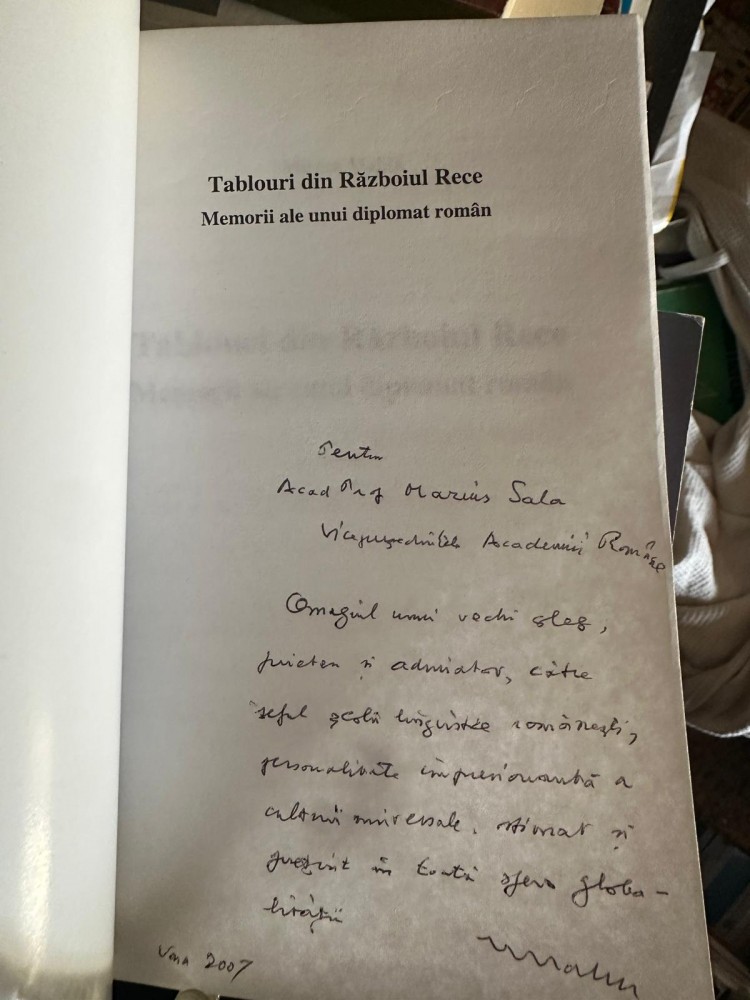 Tablouri din Războiul Rece
Memorii ale unui diplomat român
Pentru
Acad Prof Marius Sala
Vicepreşedintele Academiei Române
Omagiul unui vechi coleg,
prieten și admirator, către
șeful școlii lingvistice românești,
personalitate impresionantă a
culturii universale, stimat și
prezent în toată sfera globa-
lităţii
2007